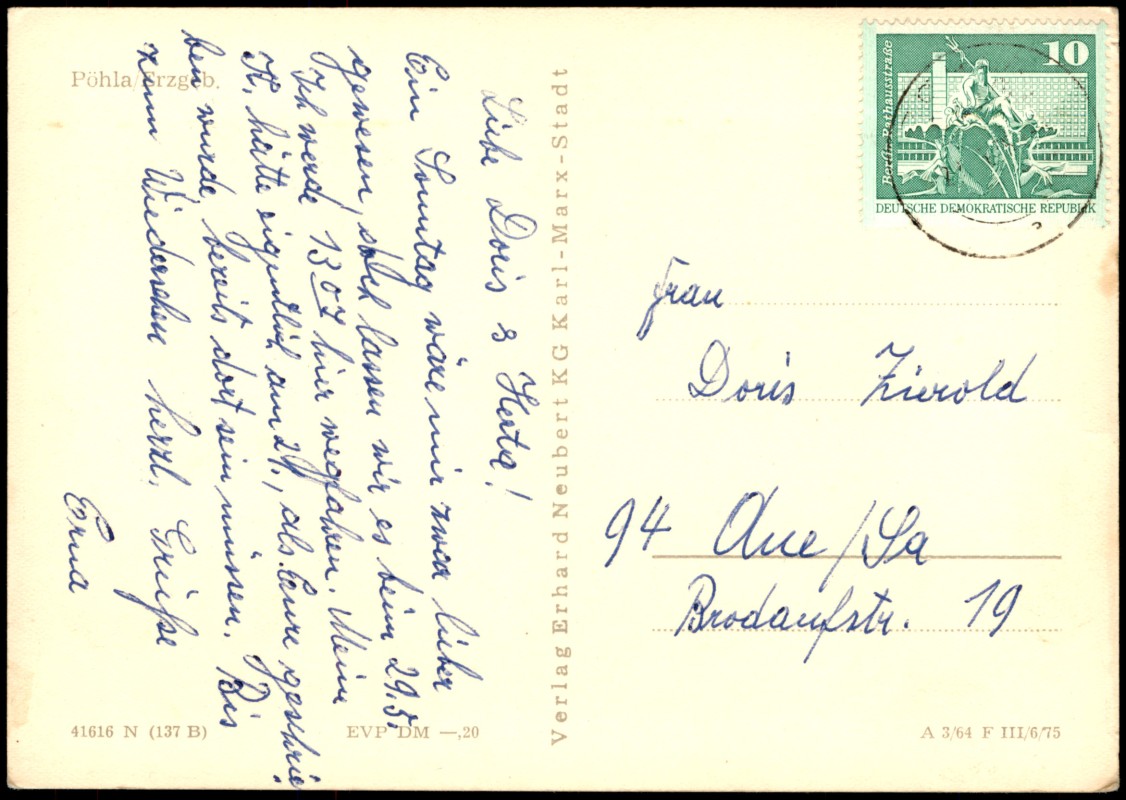 Pöhla/Erzgeb.
Liebe Doris & Herta!
Ein Sonntag wäre mir zwar lieber
gewesen, doch lassen wir es beim 29.5.
Ich werde 13 07 hier wegfahren. Mein
K. hätte eigentlich am 24., als Eure geschrie-
ben wurde, bereits dort sein müssen. Bis
zum Wiedersehen herzl. Grüße
Erna
41616 N (137 B)
EVP DM —,20
Verlag Erhard Neubert KG Karl-Marx-Stadt
Berlin-Rathausstraße
10
DEUTSCHE DEMOKRATISCHE REPUBLIK
Frau
Doris Zierold
94 Aue/Sa
Brodaufstr. 19
A 3/64 F III/6/75